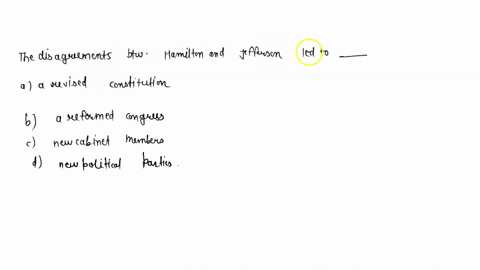 The disagreements btw. Hamilton and Jefferson led to ___
a) a revised constitution
b) a reformed congress
c) new cabinet members
d) new political Parties.